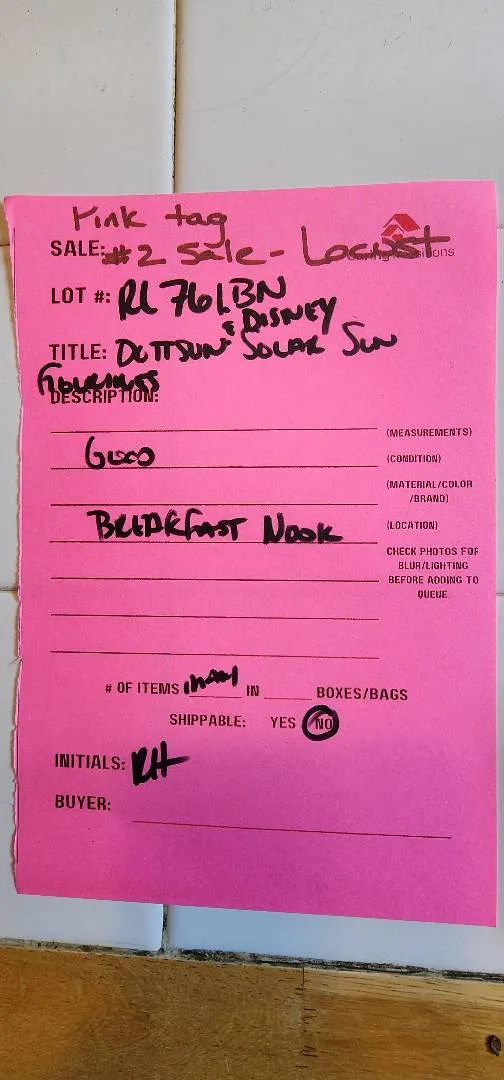 Pink tag
SALE: #2 Sale - Locust
LOT #: RL761BN
& DISNEY
TITLE: DOTTSUN SOLAR SUN
DESCRIPTION:
(MEASUREMENTS)
GOOD (CONDITION)
(MATERIAL/COLOR
/BRAND)
BREAKFAST NOOK (LOCATION)
CHECK PHOTOS FOR
BLUR/LIGHTING
BEFORE ADDING TO
QUEUE
# OF ITEMS many IN BOXES/BAGS
SHIPPABLE: YES NO
INITIALS: RH
BUYER: